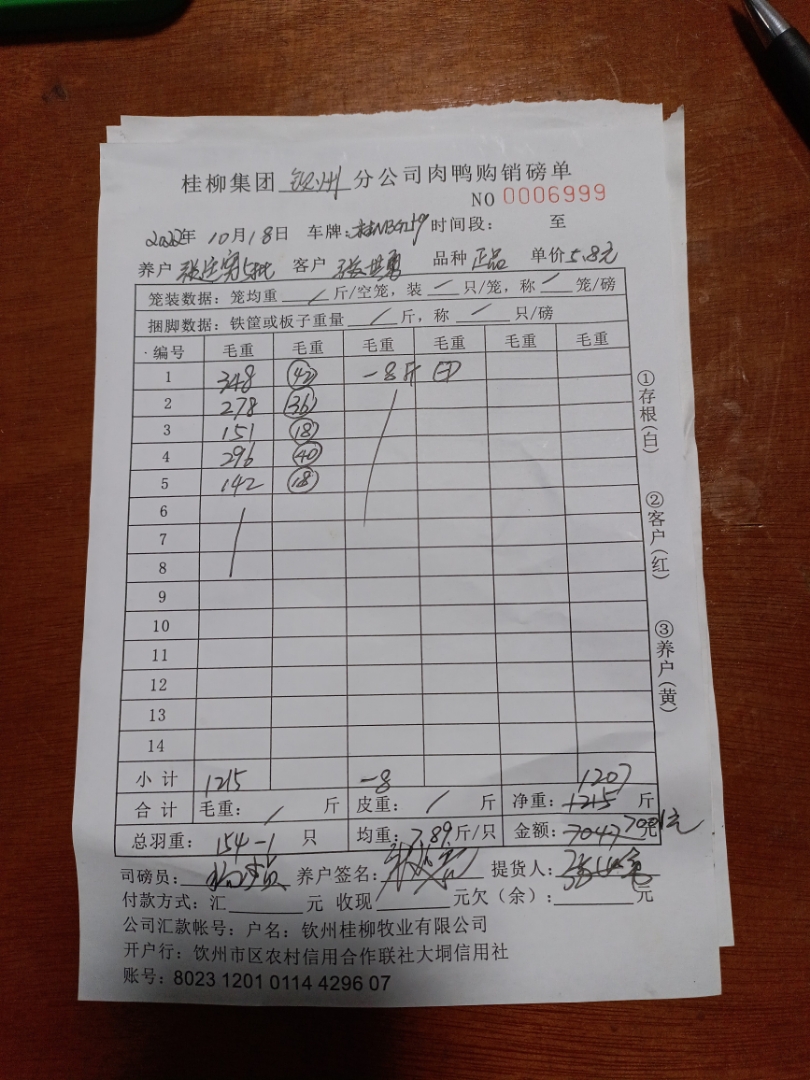 桂柳集团 钦州 分公司肉鸭购销磅单
NO 0006999
2022年 10月18日 车牌: 时间段: 至
养户 客户 张世勇 品种 正品 单价 5.8元
笼装数据:笼均重 / 斤/空笼,装 / 只/笼,称 / 笼/磅
捆脚数据:铁筐或板子重量 / 斤,称 / 只/磅
编号 毛重 毛重 毛重 毛重 毛重 毛重
1 348 42 -8斤
2 278 36
3 151 18
4 296 40
5 142 18
6
7
8
9
10
11
12
13
14
小计 1215 -8 1207
合计 毛重: / 斤 皮重: / 斤 净重: 1215 斤
总羽重: 154-1 只 均重: 7.89 斤/只 金额: 7047 元
司磅员: 养户签名: 提货人:
付款方式:汇 元 收现 元欠(余): 元
公司汇款帐号:户名:钦州桂柳牧业有限公司
开户行:钦州市区农村信用合作联社大垌信用社
账号:8023 1201 0114 4296 07
①存根(白)
②客户(红)
③养户(黄)